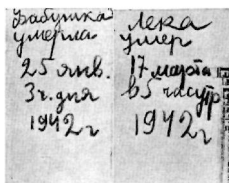 Бабушка
умерла
25 янв.
3ч. дня
1942г
Лека
умер
17 марта
в 5 часутр
1942г